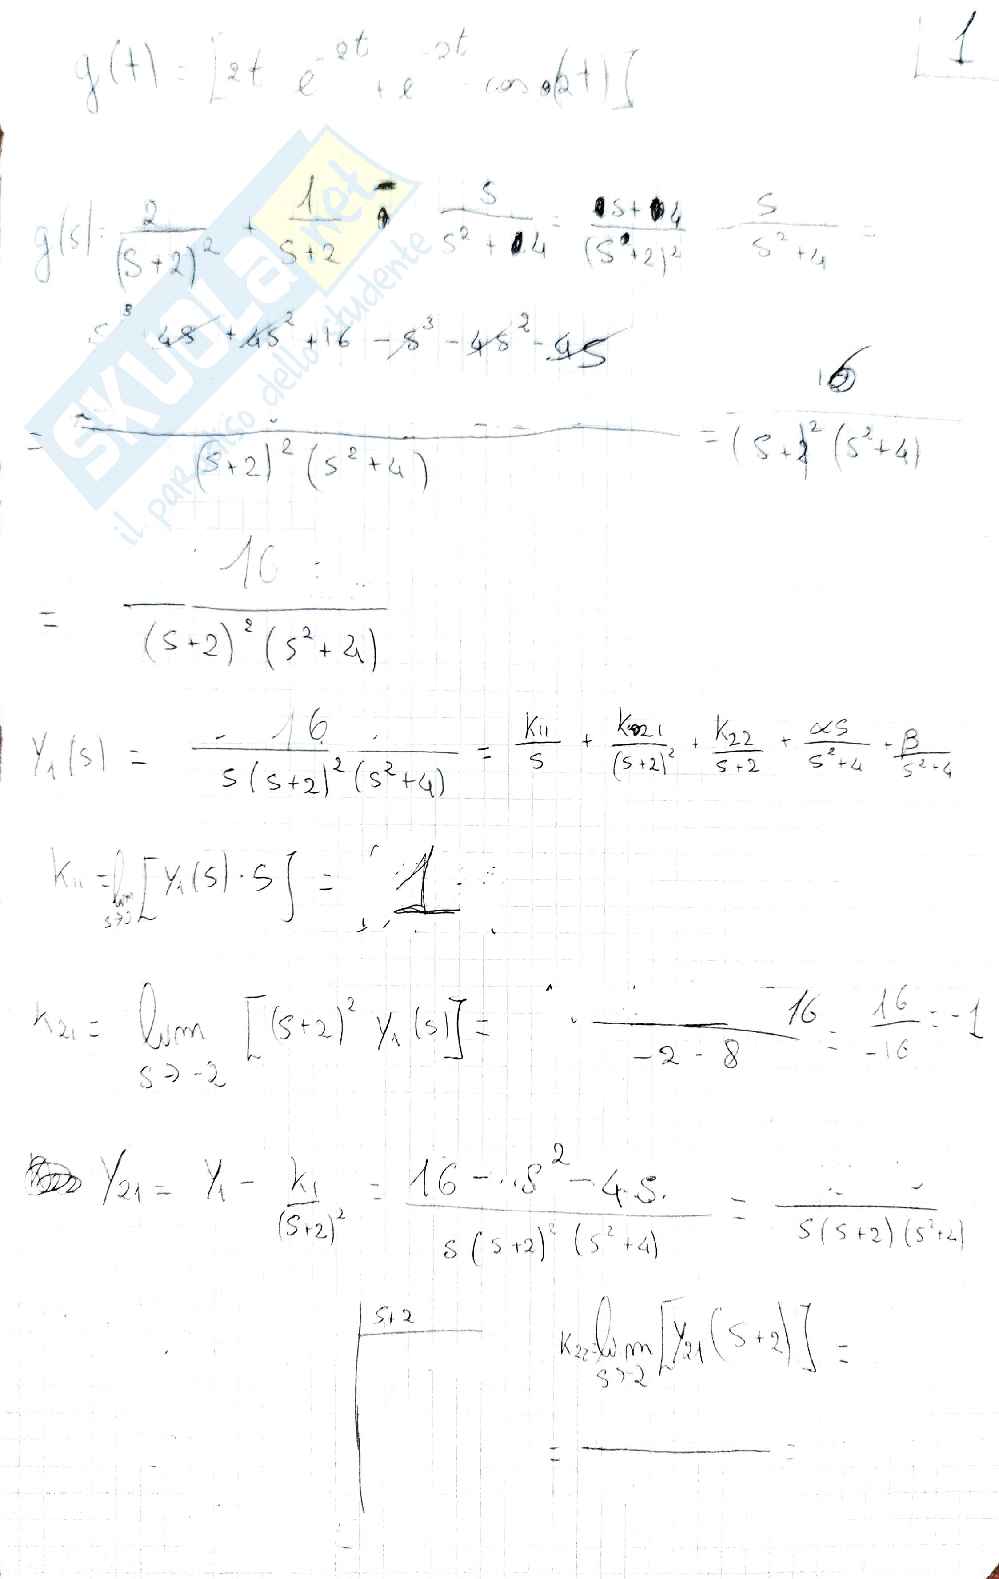 1
g(t) = [2t e^-2t + e^-2t - cos(2t)]
g(s) = 2/(s+2)^2 + 1/(s+2) - s/(s^2+4) = (s+4)/(s+2)^2 - s/(s^2+4) =
s^3 + 4s + 4s^2 + 16 - s^3 - 4s^2 - 4s
= /((s+2)^2 (s^2+4)) = 16/((s+2)^2 (s^2+4))
= 16/((s+2)^2 (s^2+4))
Y1(s) = 16/(s(s+2)^2 (s^2+4)) = K11/s + K21/(s+2)^2 + K22/(s+2) + αs/(s^2+4) + β/(s^2+4)
K11 = lim s→0 [Y1(s)·s] = 1
K21 = lim s→-2 [(s+2)^2 Y1(s)] = 16/(-2·8) = 16/-16 = -1
Y21 = Y1 - K1/(s+2)^2 = (16 - s^2 - 4s)/(s(s+2)^2 (s^2+4)) = /(s(s+2)(s^2+4))
s+2
K22 = lim s→-2 [Y21(s+2)] =
= =
SKUOLA.net
il paradiso dello studente